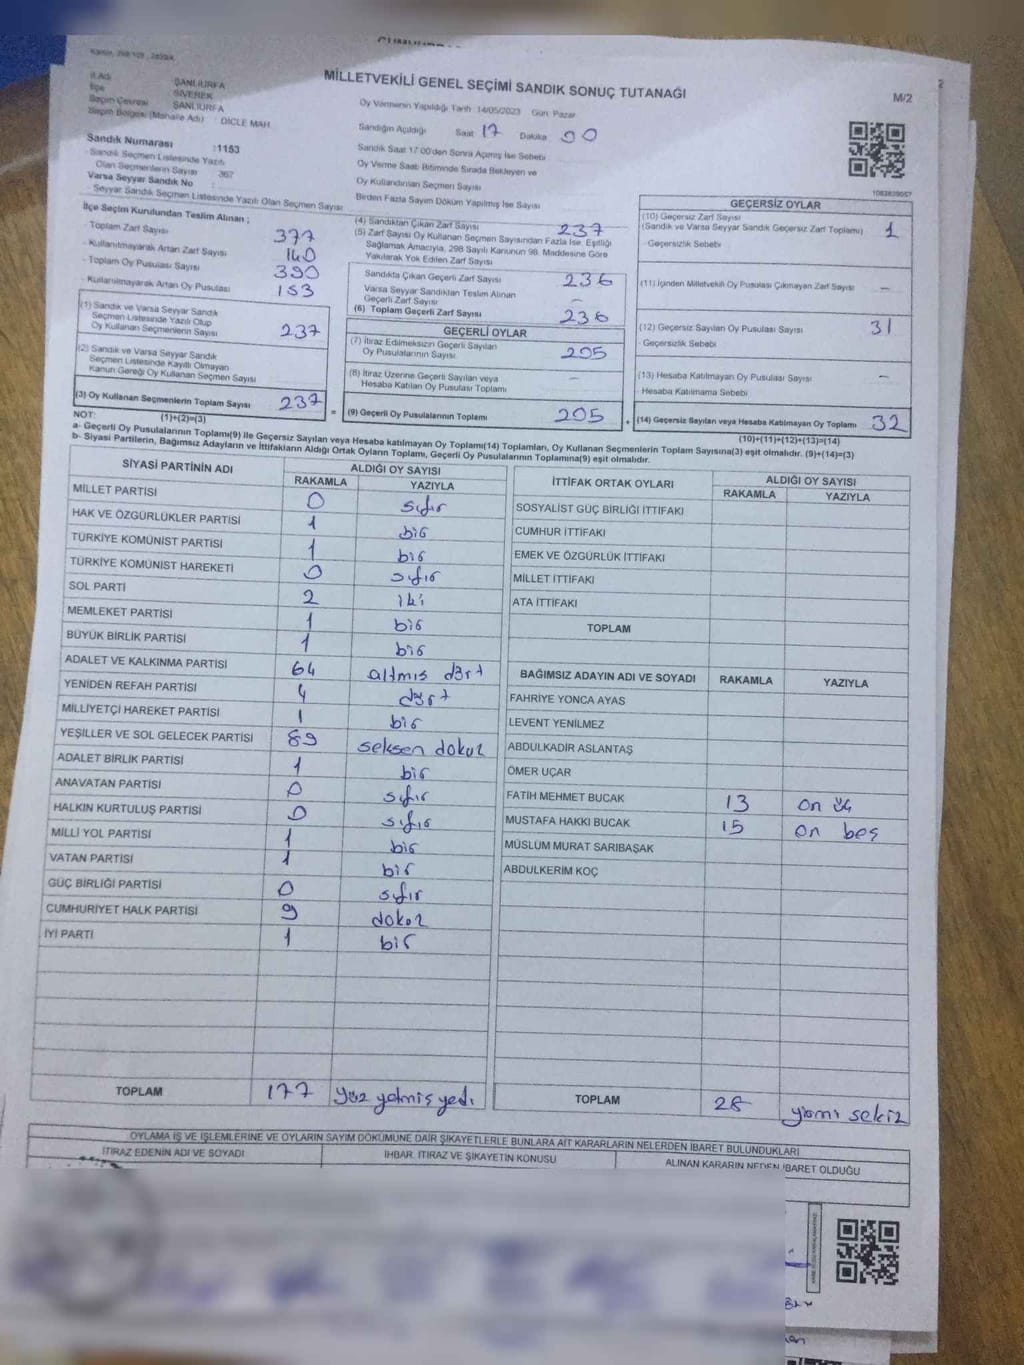 MİLLETVEKİLİ GENEL SEÇİMİ SANDIK SONUÇ TUTANAĞI
M/2
2
İl Adı ŞANLIURFA
İlçe SİVEREK
Seçim Çevresi ŞANLIURFA
Seçim Bölgesi (Mahalle Adı) : DİCLE MAH.
Sandık Numarası :1153
- Sandık Seçmen Listesinde Yazılı
Olan Seçmenlerin Sayısı 367
Varsa Seyyar Sandık No :
- Seyyar Sandık Seçmen Listesinde Yazılı Olan Seçmen Sayısı
Oy Vermenin Yapıldığı Tarih :14/05/2023 Gün: Pazar
Sandığın Açıldığı Saat 17 Dakika 00
Sandık Saat 17:00'den Sonra Açılmış İse Sebebi
Oy Verme Saati Bitiminde Sırada Bekleyen ve
Oy Kullandırılan Seçmen Sayısı
Birden Fazla Sayım Döküm Yapılmış İse Sayısı
1083639057
İlçe Seçim Kurulundan Teslim Alınan ;
- Toplam Zarf Sayısı 377
- Kullanılmayarak Artan Zarf Sayısı 140
- Toplam Oy Pusulası Sayısı 390
- Kullanılmayarak Artan Oy Pusulası 153
(1) Sandık ve Varsa Seyyar Sandık
Seçmen Listesinde Yazılı Olup
Oy Kullanan Seçmenlerin Sayısı 237
(2) Sandık ve Varsa Seyyar Sandık
Seçmen Listesinde Kayıtlı Olmayan
Kanun Gereği Oy Kullanan Seçmen Sayısı
(3) Oy Kullanan Seçmenlerin Toplam Sayısı 237
(1)+(2)=(3)
(4) Sandıktan Çıkan Zarf Sayısı 237
(5) Zarf Sayısı Oy Kullanan Seçmen Sayısından Fazla İse, Eşitliği
Sağlamak Amacıyla, 298 Sayılı Kanunun 98. Maddesine Göre
Yakılarak Yok Edilen Zarf Sayısı
Sandıkta Çıkan Geçerli Zarf Sayısı 236
Varsa Seyyar Sandıktan Teslim Alınan
Geçerli Zarf Sayısı –
(6) Toplam Geçerli Zarf Sayısı 236
GEÇERLİ OYLAR
(7) İtiraz Edilmeksizin Geçerli Sayılan
Oy Pusulalarının Sayısı 205
(8) İtiraz Üzerine Geçerli Sayılan veya
Hesaba Katılan Oy Pusulası Toplamı –
= (9) Geçerli Oy Pusulalarının Toplamı 205
GEÇERSİZ OYLAR
(10) Geçersiz Zarf Sayısı
(Sandık ve Varsa Seyyar Sandık Geçersiz Zarf Toplamı) 1
- Geçersizlik Sebebi
(11) İçinden Milletvekili Oy Pusulası Çıkmayan Zarf Sayısı –
(12) Geçersiz Sayılan Oy Pusulası Sayısı 31
- Geçersizlik Sebebi
(13) Hesaba Katılmayan Oy Pusulası Sayısı –
- Hesaba Katılmama Sebebi
+ (14) Geçersiz Sayılan veya Hesaba Katılmayan Oy Toplamı 32
(10)+(11)+(12)+(13)=(14)
NOT:
a- Geçerli Oy Pusulalarının Toplamı(9) ile Geçersiz Sayılan veya Hesaba katılmayan Oy Toplamı(14) Toplamları, Oy Kullanan Seçmenlerin Toplam Sayısına(3) eşit olmalıdır. (9)+(14)=(3)
b- Siyasi Partilerin, Bağımsız Adayların ve İttifakların Aldığı Ortak Oyların Toplamı, Geçerli Oy Pusulalarının Toplamına(9) eşit olmalıdır.
SİYASİ PARTİNİN ADI ALDIĞI OY SAYISI
RAKAMLA YAZIYLA
MİLLET PARTİSİ 0 sıfır
HAK VE ÖZGÜRLÜKLER PARTİSİ 1 bir
TÜRKİYE KOMÜNİST PARTİSİ 1 bir
TÜRKİYE KOMÜNİST HAREKETİ 0 sıfır
SOL PARTİ 2 iki
MEMLEKET PARTİSİ 1 bir
BÜYÜK BİRLİK PARTİSİ 1 bir
ADALET VE KALKINMA PARTİSİ 64 altmış dört
YENİDEN REFAH PARTİSİ 4 dört
MİLLİYETÇİ HAREKET PARTİSİ 1 bir
YEŞİLLER VE SOL GELECEK PARTİSİ 89 seksen dokuz
ADALET BİRLİK PARTİSİ 1 bir
ANAVATAN PARTİSİ 0 sıfır
HALKIN KURTULUŞ PARTİSİ 0 sıfır
MİLLİ YOL PARTİSİ 1 bir
VATAN PARTİSİ 1 bir
GÜÇ BİRLİĞİ PARTİSİ 0 sıfır
CUMHURİYET HALK PARTİSİ 9 dokuz
İYİ PARTİ 1 bir
TOPLAM 177 yüz yetmiş yedi
İTTİFAK ORTAK OYLARI ALDIĞI OY SAYISI
RAKAMLA YAZIYLA
SOSYALİST GÜÇ BİRLİĞİ İTTİFAKI
CUMHUR İTTİFAKI
EMEK VE ÖZGÜRLÜK İTTİFAKI
MİLLET İTTİFAKI
ATA İTTİFAKI
TOPLAM
BAĞIMSIZ ADAYIN ADI VE SOYADI RAKAMLA YAZIYLA
FAHRİYE YONCA AYAS
LEVENT YENİLMEZ
ABDULKADİR ASLANTAŞ
ÖMER UÇAR
FATİH MEHMET BUCAK 13 on üç
MUSTAFA HAKKI BUCAK 15 on beş
MÜSLÜM MURAT SARIBAŞAK
ABDULKERİM KOÇ
TOPLAM 28 yirmi sekiz
OYLAMA İŞ VE İŞLEMLERİNE VE OYLARIN SAYIM DÖKÜMÜNE DAİR ŞİKAYETLERLE BUNLARA AİT KARARLARIN NELERDEN İBARET BULUNDUKLARI
İTİRAZ EDENİN ADI VE SOYADI İHBAR, İTİRAZ VE ŞİKAYETİN KONUSU ALINAN KARARIN NEDEN İBARET OLDUĞU